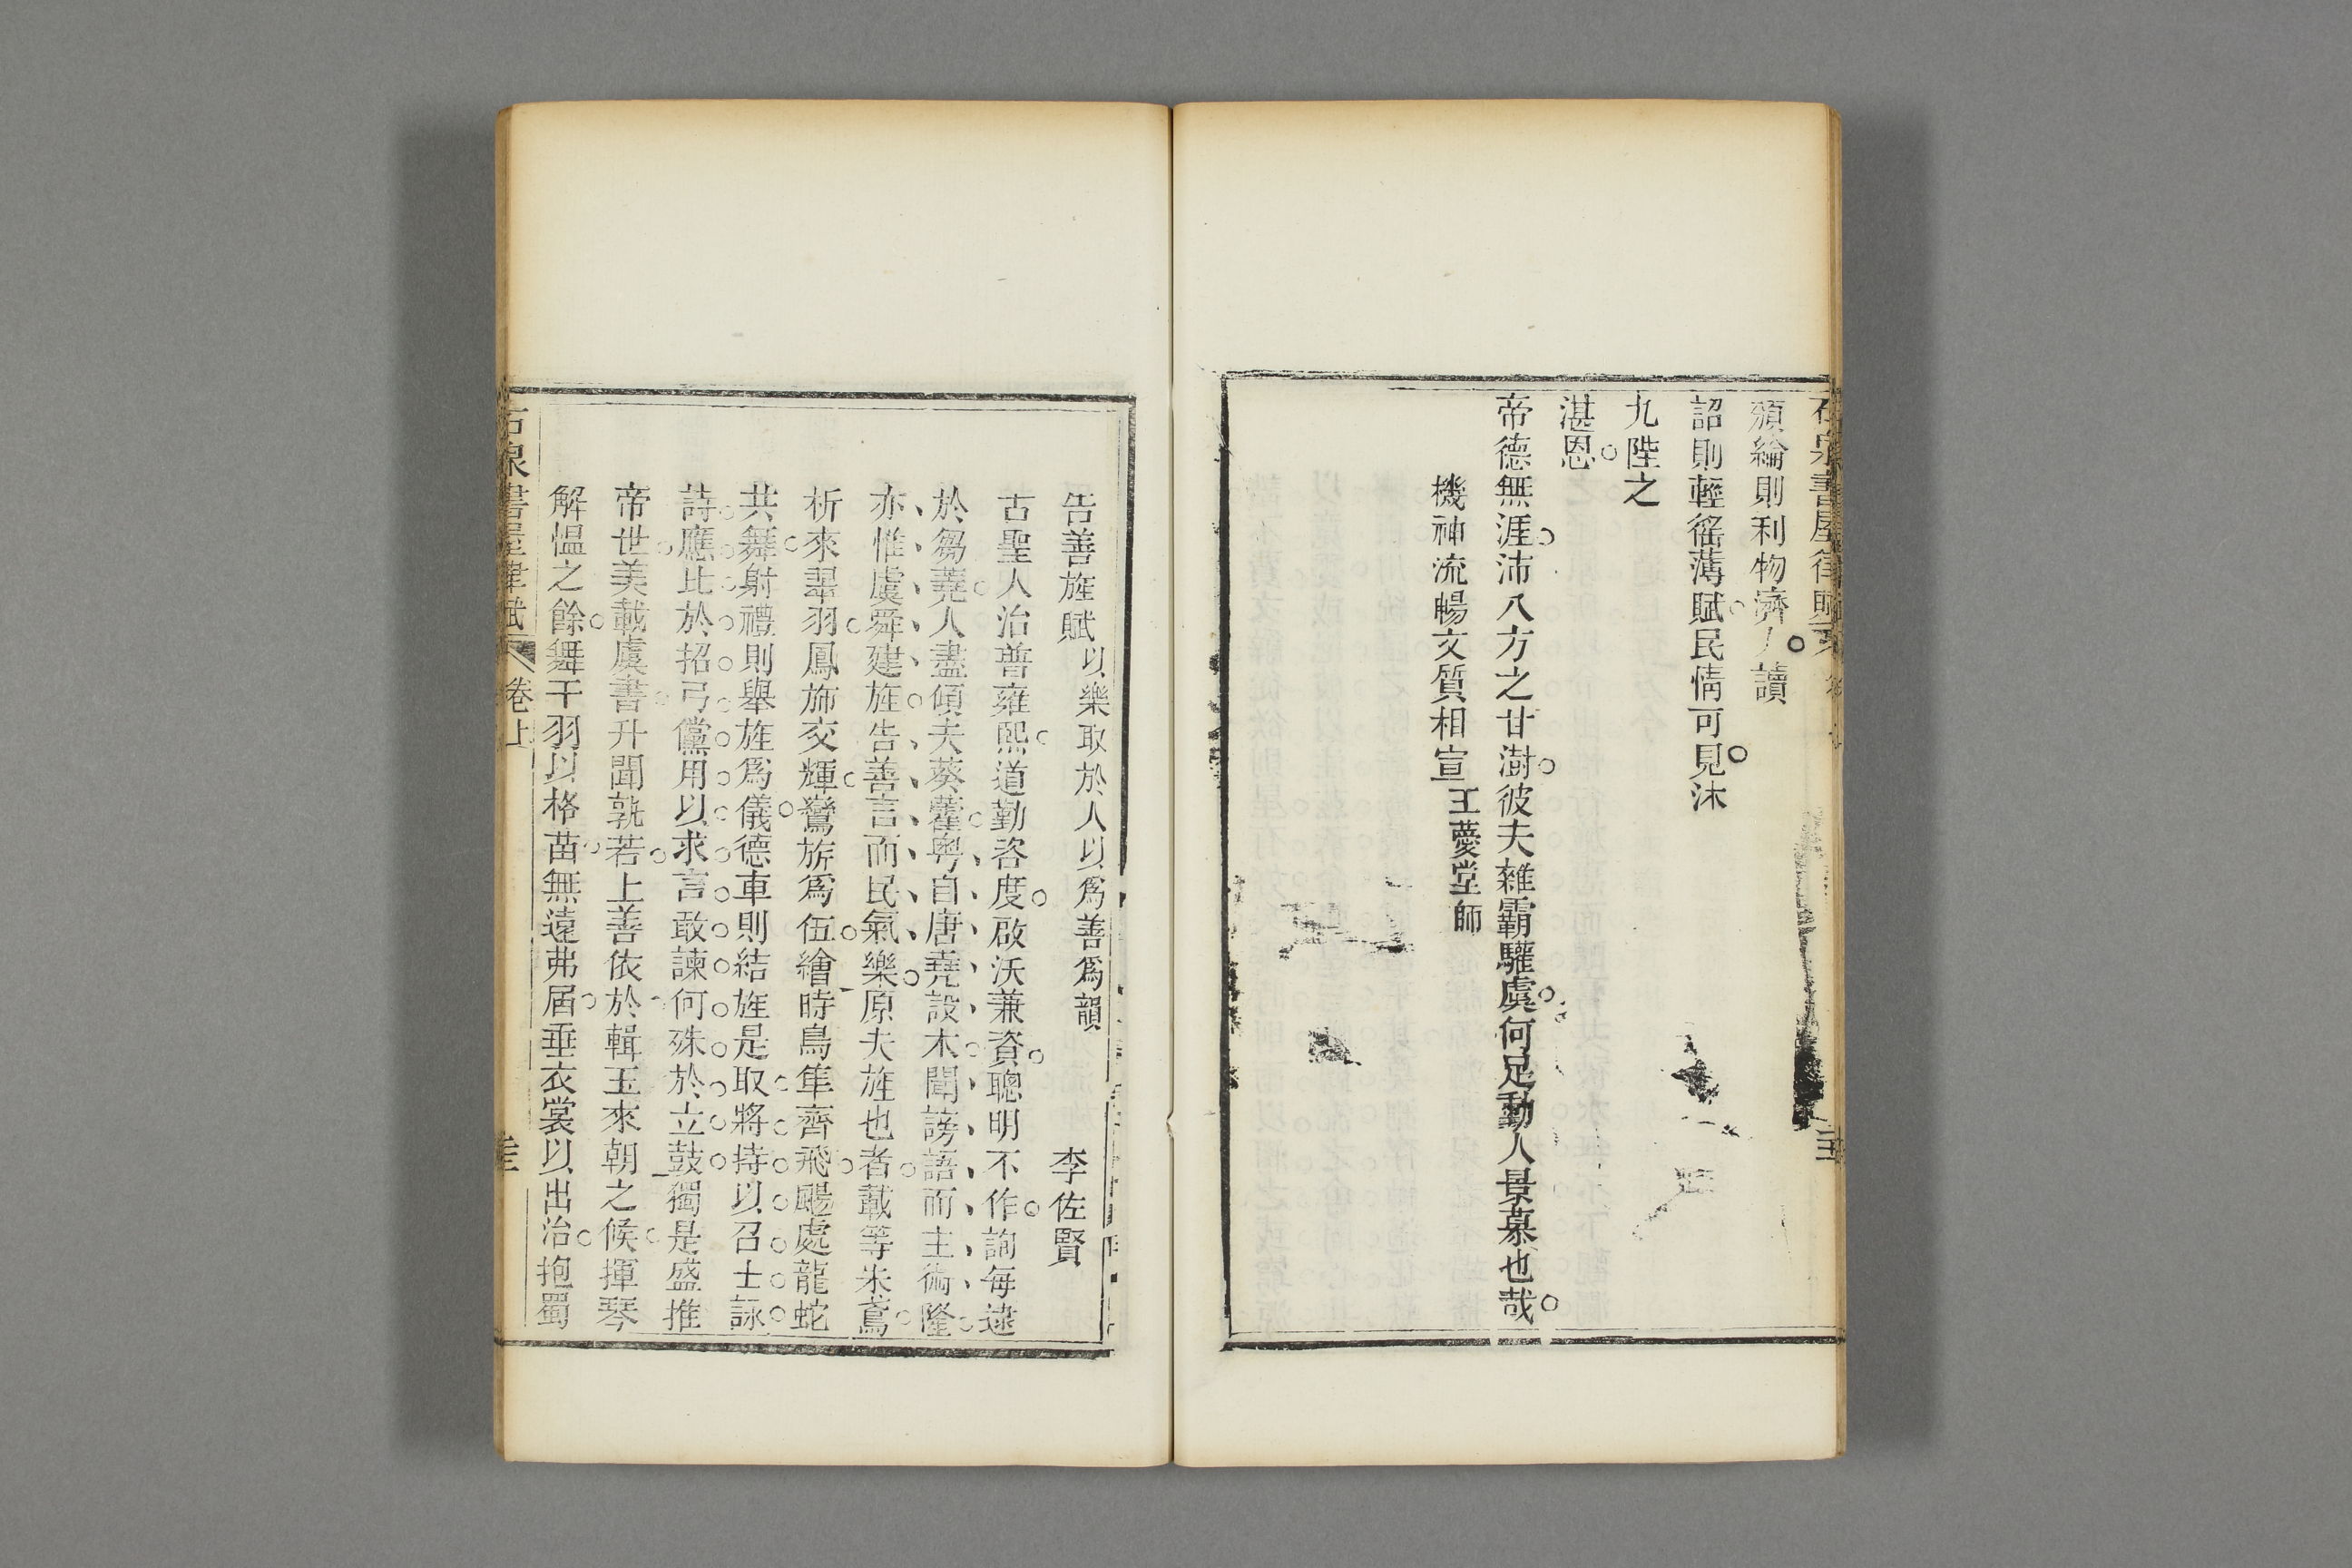 石泉書屋律賦
頒綸則利物濟人讀
詔則輕徭薄賦民情可見沐
九陛之
湛恩
帝德無涯沛八方之甘澍彼夫雜霸驩虞何足動人景慕也哉
機神流暢文質相宣 王蓤堂師
告善旌賦 以樂取於人以爲善爲韻 李佐賢
古聖人治普雍熙道勤咨度啟沃兼資聰明不作詢每逮
於芻蕘人盡傾夫葵藿粤自唐堯設木聞謗語而主術隆
亦惟虞舜建旌告善言而民氣樂原夫旌也者載等朱鳶
析來翠羽鳳斾交輝鸞旂爲伍繪時鳥隼齊飛颺處龍蛇
共舞射禮則舉旌爲儀德車則結旌是取將持以召士詠
詩應比於招弓儻用以求言敢諫何殊於立鼓獨是盛推
帝世美載虞書升聞孰若上善依於輯玉來朝之候揮琴
解慍之餘舞干羽以格苗無遠弗屆垂衣裳以出治抱蜀
石泉書屋律賦 卷上